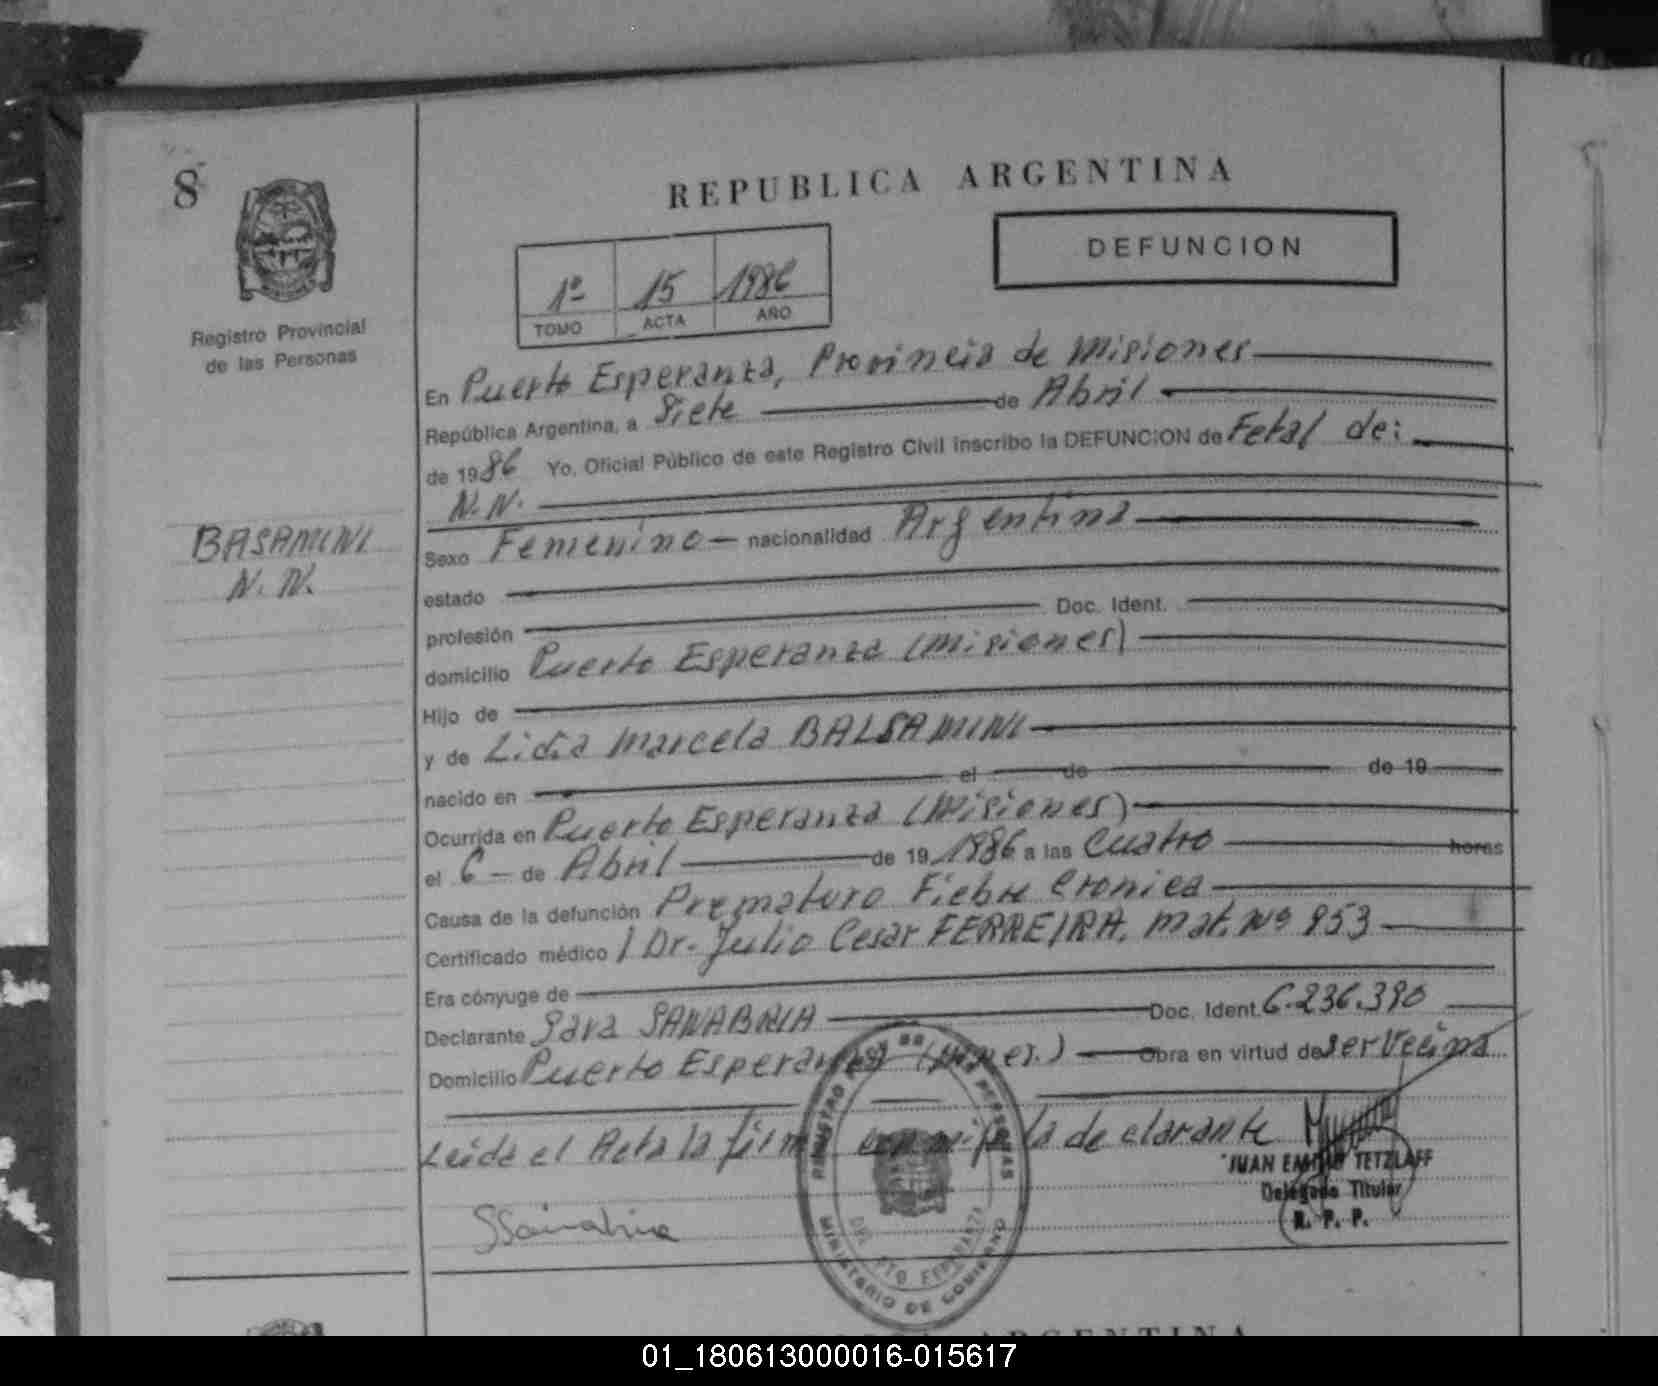 8
REPUBLICA ARGENTINA
DEFUNCION
1º 15 1986
TOMO ACTA AÑO
Registro Provincial
de las Personas
En Puerto Esperanza, Provincia de Misiones
República Argentina, a Siete de Abril
de 1986 Yo, Oficial Público de este Registro Civil inscribo la DEFUNCION de Fetal de:
N.N.
BASAMINI
N. N.
Sexo Femenino nacionalidad Argentina
estado
profesión Doc. Ident.
domicilio Puerto Esperanza (Misiones)
Hijo de
y de Lidia Marcela BALSAMINI
nacido en el de de 19
Ocurrida en Puerto Esperanza (Misiones)
el 6 de Abril de 19 1986 a las Cuatro horas
Causa de la defunción Prematuro Fiebre Cronica
Certificado médico Dr. Julio Cesar FERREIRA, Mat. Nº 953
Era cónyuge de
Declarante Sara SANABRIA Doc. Ident. 6.236.390
Domicilio Puerto Esperanza (Mnes.) Obra en virtud de ser Vecina
Leida el Acta la firma conmigo la declarante
JUAN EMILIO TETZLAFF
Delegado Titular
R. P. P.
SSanabria
REGISTRO DE LAS PERSONAS
DEL. PTO ESPERANZA
MINISTERIO DE GOBIERNO
REPUBLICA ARGENTINA
01_180613000016-015617